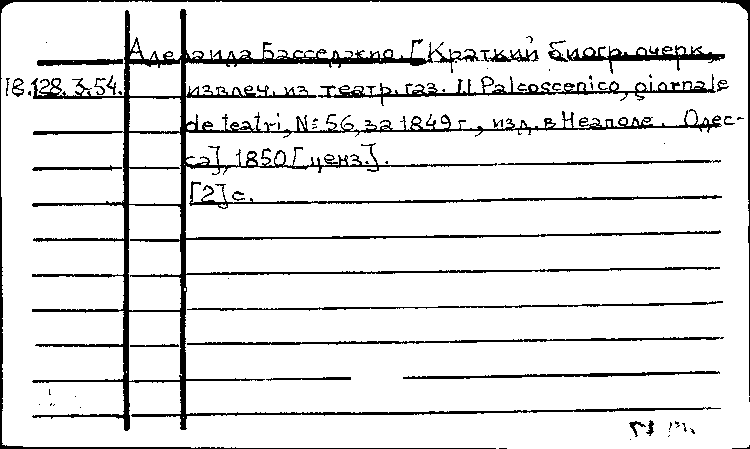 Аделаида Басседжио. [Краткий биогр. очерк,
18.128.3.54. извлеч. из театр. газ. Il Palcoscenico, giornale
de teatri, №56, за 1849 г., изд. в Неаполе. Одес-
са], 1850 [ценз.].
[2] с.